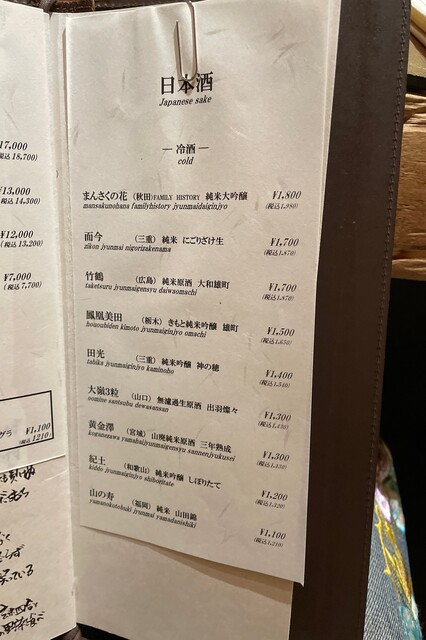 17,000
(税込 18,700)
¥13,000
(税込 14,300)
¥12,000
(税込 13,200)
¥7,000
(税込 7,700)
グラ ¥1,100
(税込 1210)
日本酒
Japanese sake
― 冷酒 ―
cold
まんさくの花 (秋田)FAMILY HISTORY 純米大吟醸 ¥1,800
mansakunohana familyhistory jyunmaidaiginjyo (税込1,980)
而今 (三重) 純米 にごりざけ生 ¥1,700
zikon jyunmai nigorizakenama (税込1,870)
竹鶴 (広島) 純米原酒 大和雄町 ¥1,700
taketsuru jyunmaigensyu daiwaomachi (税込1,870)
鳳凰美田 (栃木) きもと純米吟醸 雄町 ¥1,500
hououbiden kimoto jyunmaiginjyo omachi (税込1,650)
田光 (三重) 純米吟醸 神の穂 ¥1,400
tabika jyunmaiginjyo kaminoho (税込1,540)
大嶺3粒 (山口) 無濾過生原酒 出羽燦々 ¥1,300
oomine santsubu dewasansan (税込1,430)
黄金澤 (宮城) 山廃純米原酒 三年熟成 ¥1,300
koganesawa yamahaijyunmaigensyu sannenjyukusei (税込1,430)
紀土 (和歌山) 純米吟醸 しぼりたて ¥1,200
kiddo jyunmaiginjyo shiboritate (税込1,320)
山の寿 (福岡) 純米 山田錦 ¥1,100
yamanokotobuki jyunmai yamadanishiki (税込1,210)